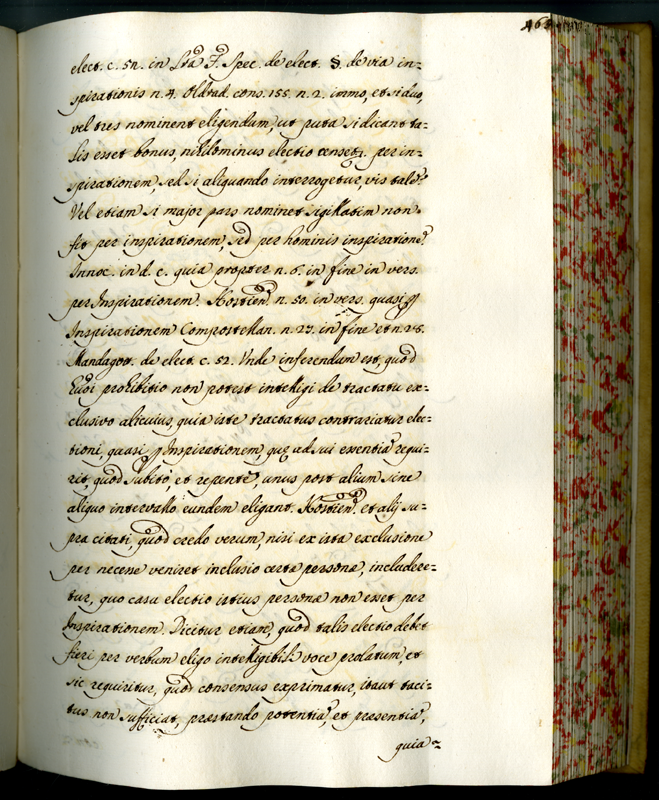 elect. c. 52. in Lrã F. Spec. de elect. §. de via in=
spirationis n. 4. Oldrad. cons. 155. n. 2. immo, et si duo,
vel tres nominent eligendum, ut puta si dicant ta=
lis esset bonus, nihilominus electio censetr. per in=
spirationem sed si aliquando interrogetur, vis talẽ?
Vel etiam si major pars nominet sigillatim non
fit per inspirationem, sed per hominis inspirationẽ.
Innoc. in d. c. quia propter n. 6. in fine in vers.
per Inspirationem. Hostien. n. 50. in vers. quasi ꝑ
Inspirationem Compostellan. n. 27. in fine et n. 28.
Mandagot. de elect. c. 52. Unde inferendum est, quod
prohibitio non potest intelligi de tractatu ex=
clusivo alicuius, quia iste tractatus contrariatur elec=
tioni, quasi ꝑ Inspirationem, quę ad sui essentiã requi=
rit, quod subitò, et repentè, unus post alium sine
aliquo intervallo eundem eligant. Hostien. et alij su=
pra citati, quod credo verum, nisi ex ista exclusione
per necesse veniret inclusio certæ personæ, includere=
tur, quo casu electio istius personæ non esset per
Inspirationem. Dicitur etiam, quod talis electio debet
fieri per verbum eligo intelligibili voce prolatum, et
sic requiritur, quod consensus exprimatur, itaut taci=
tus non sufficiat, prestando potentiã, et presentiã,
quia=